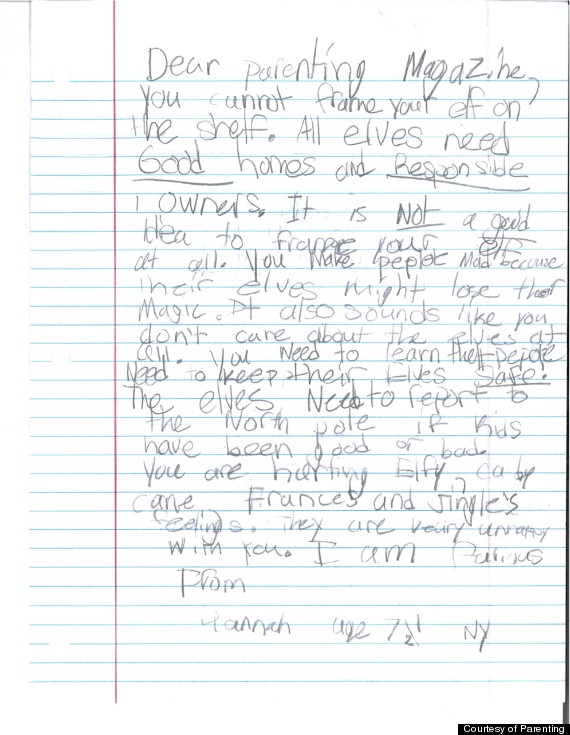 Dear parenting Magazine,
you cannot frame your elf on
the shelf. All elves need
Good homes and Responside
owners. It is NOT a good
Idea to frame your elf
at all. You make peplol Mad because
their elves might lose their
Magic. It also sounds like you
don't care about the elves at
all. You Need to learn that pepole
Need to keep their Elves Safe!
The elves Need to report to
the North pole if kids
have been good or bad.
You are hurting Elfy, ca by
cane, Frances and Jingle's
feelings. They are veiry unhappy
with you. I am Furious
From
Hannah age 7½ NY
Courtesy of Parenting